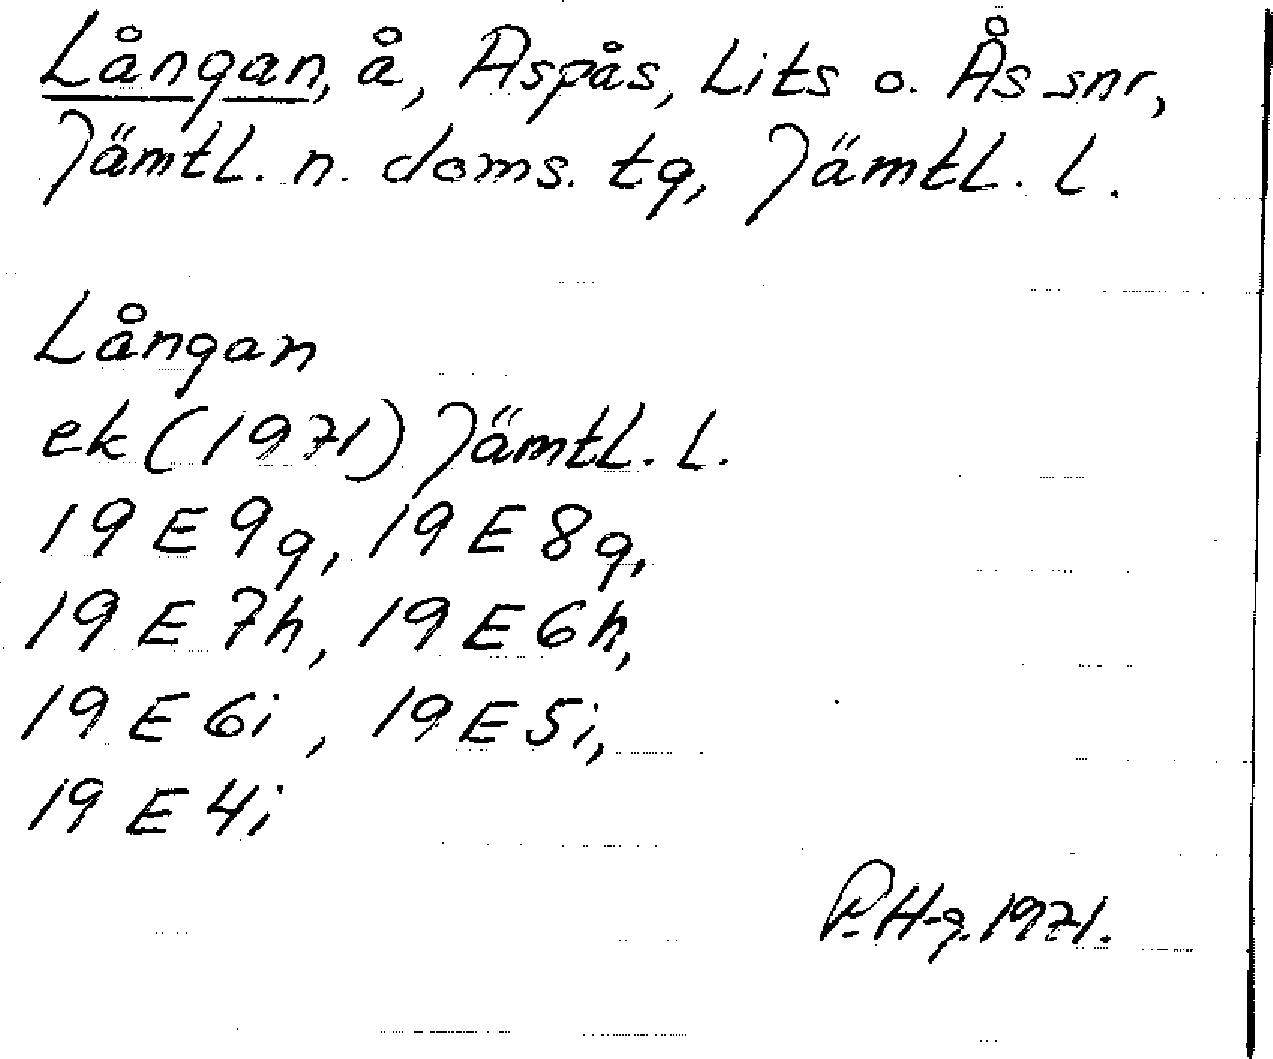 Långan, å, Aspås, Lits o. Ås snr,
Jämtl. n. doms. tg, Jämtl. l.
Långan
ek (1971) Jämtl. l.
19 E 9g, 19 E 8g,
19 E 7h, 19 E 6h,
19 E 6i, 19 E 5i,
19 E 4i
P. H-g. 1971.